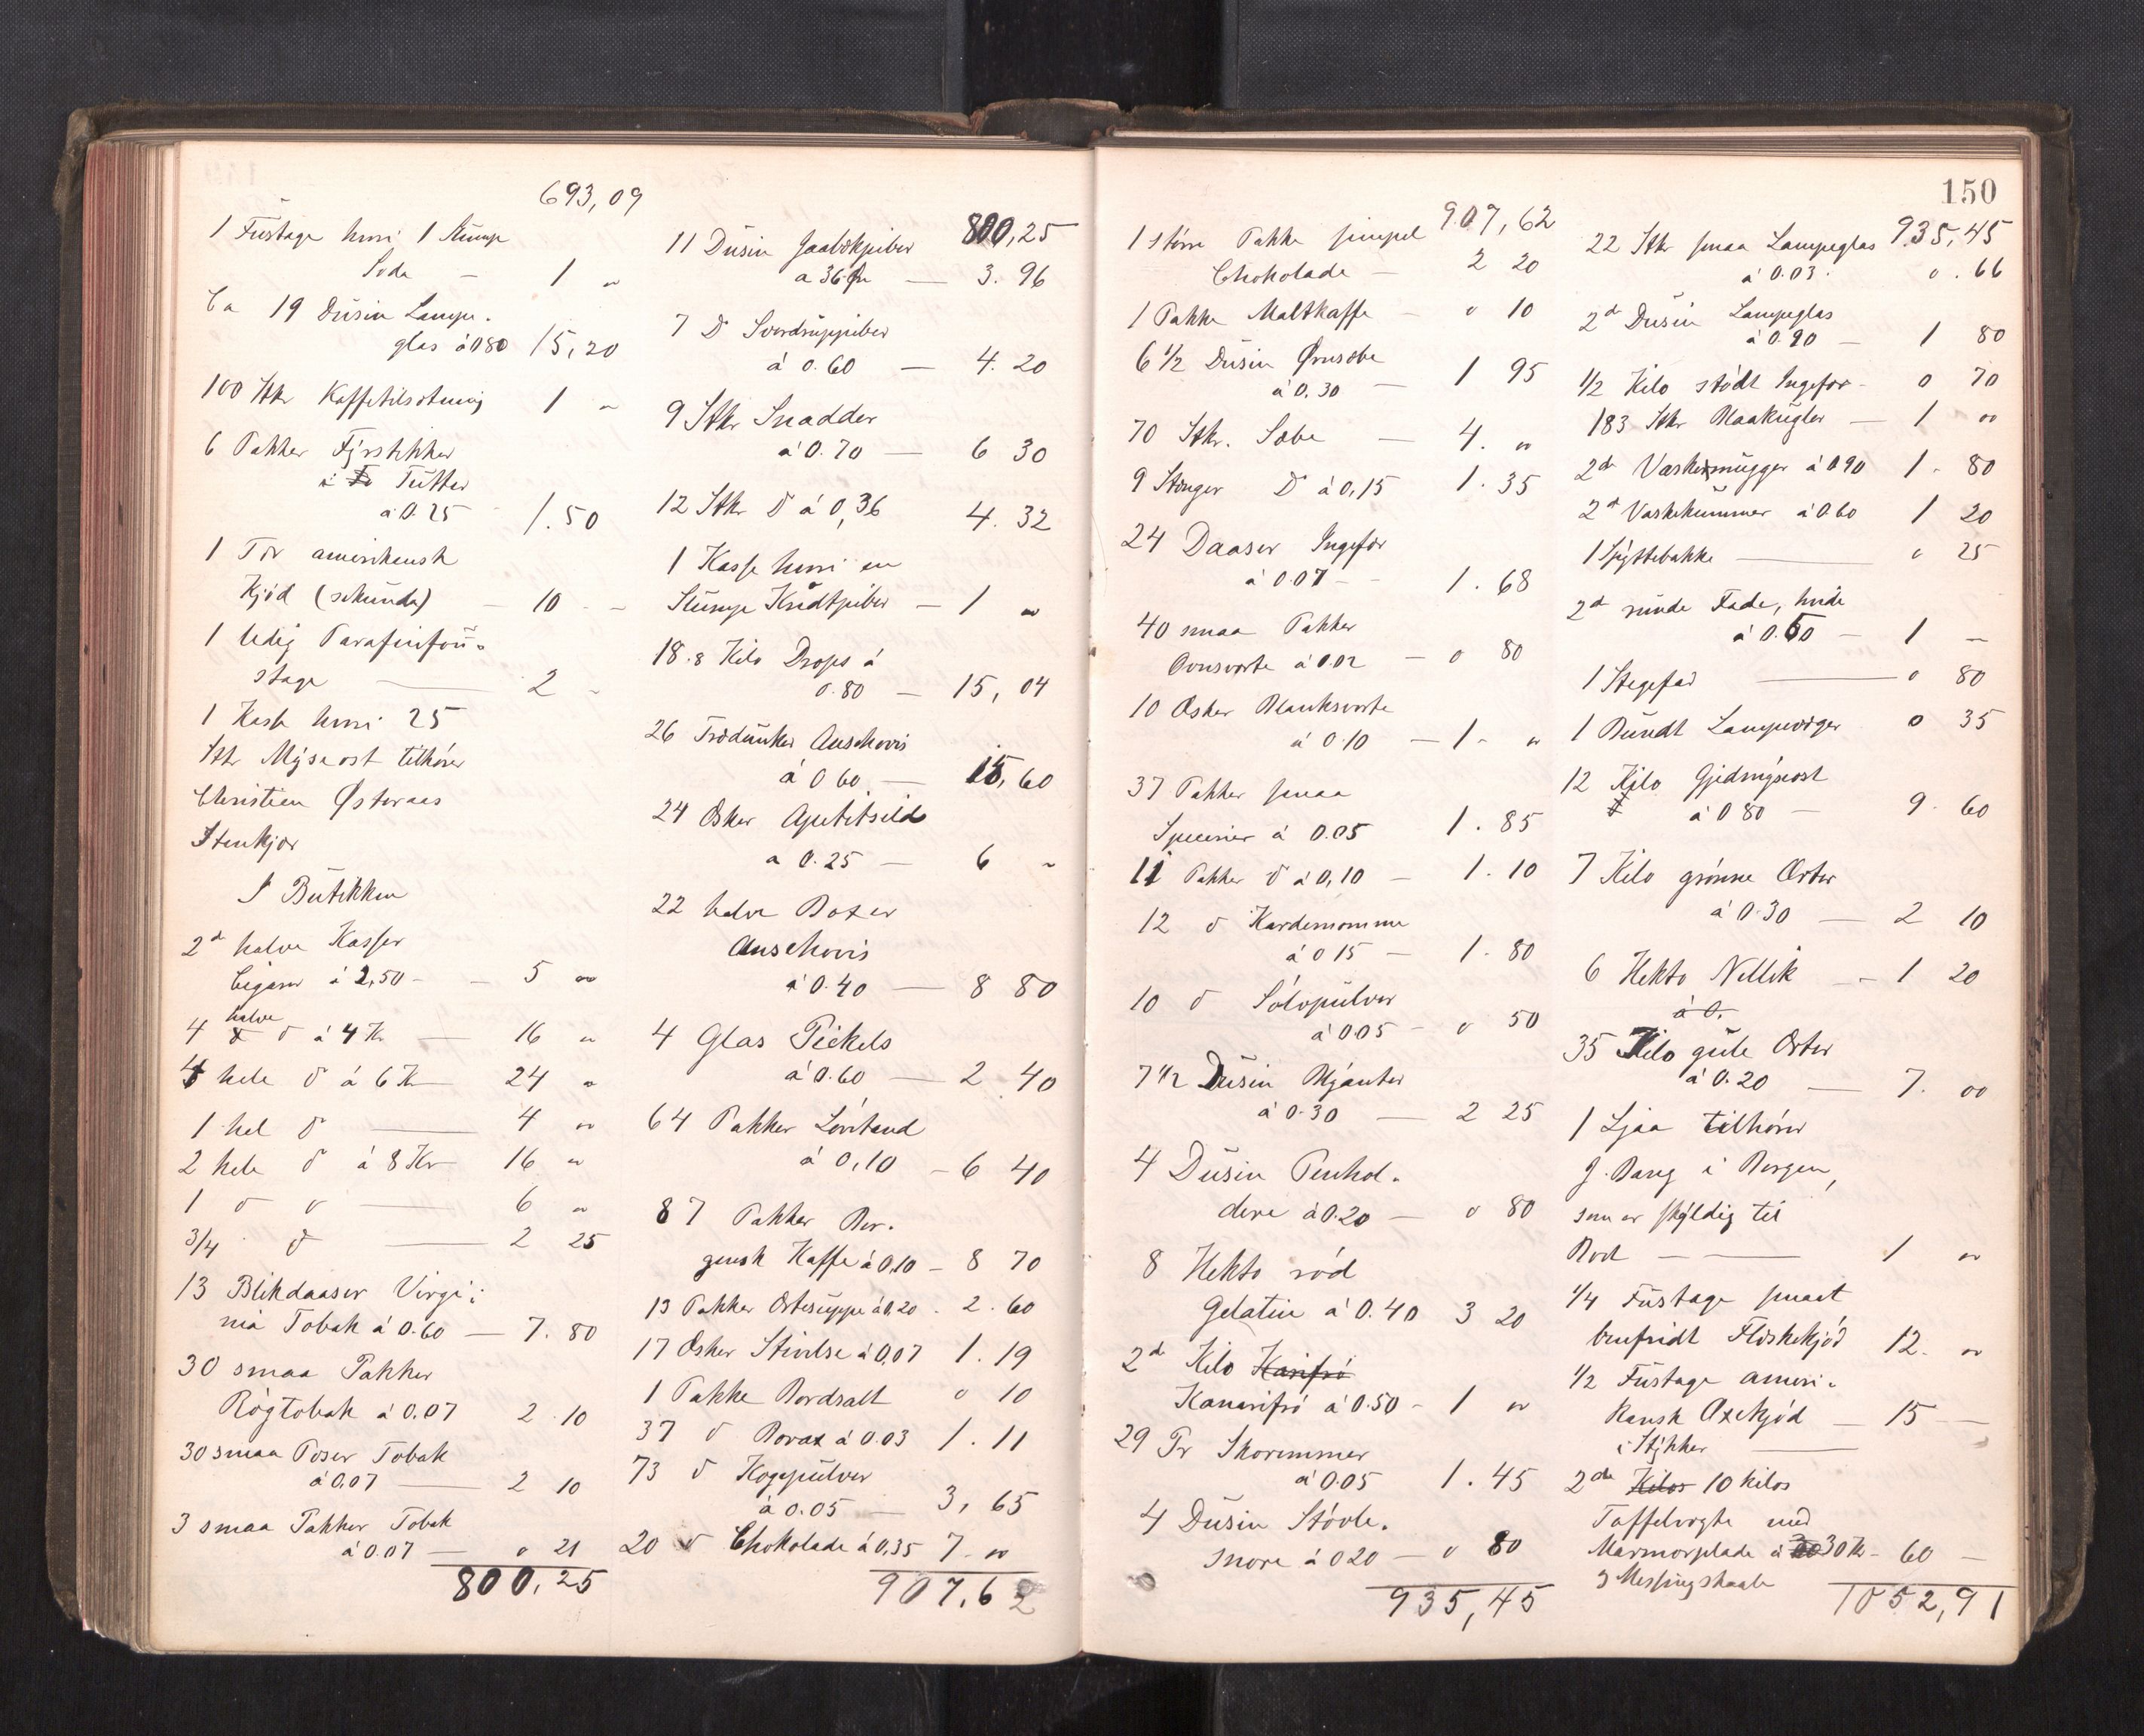 693,09
1 Fustage hvori 1 Slump
Soda - 1 "
Ca 19 Dusin Lampe-
glas á 0 80 15,20
100 Stkr Kaffetilsetning 1 "
6 Pakker Fyrstikker
i Tutter
á 0.25 1.50
1 Tdr amerikansk
Kjød (sekunda) - 10 - "
1 ledig Parafinfou-
stage - 2 "
1 Kasse hvori 25
Stkr Myseost tilhører
Christian Østeraas
Stenkjær
I Butikken
2de halve Kasser
Cigarer á 2,50 - - 5 "
4 halve do á 4 Kr - 16 "
4 hele do á 6 Kr 24 "
1 hel do - 4 "
2 hele do á 8 Kr 16 "
1 do do - 6 "
3/4 do - 2 25
13 Blikdaaser Virgi-
nia Tobak á 0.60 - 7.80
30 smaa Pakker
Røgtobak á 0.07 2.10
30 smaa Poser Tobak
á 0,07 - 2 10
3 smaa Pakker Tobak
á 0.07 - 0 21
800,25
800,25
11 Dusin
a 36 Øre - 3.96
7 Do Sverdruppiber
á 0.60 - 4.20
9 Stkr Snadder
á 0.70 - 6 30
12 Stkr Do á 0,36 4.32
1 Kasse hvori en
Slump Kridtpiber - 1 "
18.8 Kilo Drops á
0.80 - 15,04
26 Trædunker Anschovis
á 0 60 - 15,60
24 Æsker Apetitsild
a 0.25 - 6 "
22 halve Boxer
Anschovis
á 0.40 - 8 80
4 Glas Pickels
á 0.60 - 2 40
64 Pakker Løvetand
á 0,10 - 6 40
87 Pakker Ber-
gensk Kaffe á 0,10 - 8 70
13 Pakker Ertesuppe á 0.20 - 2.60
17 Æsker Stivelse á 0,07 1.19
1 Pakke Bordsalt 0 10
37 do Borax á 0.03 1.11
73 do Kogepulver
á 0.05 - 3,65
20 do Chokolade á 0,35 7 - "
907,62
150
907,62
1 større Pakke simpel
Chokolade - 2 20
1 Pakke Maltkaffe - 0 10
6 1/2 Dusin Ørnsæbe
á 0,30 - 1 95
70 Stkr. Sæbe - 4. "
9 Stænger Do á 0,15 1.35
24 Daaser Ingefær
á 0.07 - - 1.68
40 smaa Pakker
Ovnsværte á 0.02 - 0 80
10 Æsker Blanksværte
á 0.10 - 1 - "
37 Pakker smaa
Specerier á 0.05 1.85
11 Pakker do á 0,10 - 1.10
12 do Kardemomme
á 0 15 - 1.80
10 do Sølvpulver
á 0.05 - 0 50
7 1/2 Dusin Blyanter
á 0.30 - 2 25
4 Dusin Penhol-
dere á 0.20 - 0 80
8 Hekto rød
Gelatin á 0.40 3 20
2de Kilo Karifrø
Kanarifrø á 0.50 - 1 "
29 Pr Skoremmer
á 0.05 1.45
4 Dusin Støvle-
snore á 0 20 - 0 80
935,45
935,45
22 Stkr smaa Lampeglas
á 0.03. 0.66
2de Dusin Lampeglas
á 0.90 - 1 80
1/2 Kilo stødt Ingefær - 0 70
183 Stkr Blaakugler - 1 "
2de Vaskemugger á 0.90 1 - 80
2de Vaskekummer á 0.60 1 20
1 Spyttebakke - 0 25
2de runde Fade, hvide
á 0.50 - 1 -
1 Stegefad - 0 80
1 Bundt Lampevæger 0 35
12 Kilo Gjedmyseost
á 0 80 - 9.60
7 Kilo grønne Ærter
á 0.30 - 2 10
6 Hekto Nellik - 1 20
á 0.
35 Kilo gule Ærter
á 0.20 - 7. 00
1 Ljaa tilhører
J. Bang i Bergen,
som er skyldig til
Boet - 1 "
1/4 Fustage smaat
benfridt Flæskekjød 12. "
1/2 Fustage ameri-
kansk Oxekjød - 15 -
i Stykker -
2de Kilos 10 kilos
Taffelvægte med
Marmorplade á 30 Kr - 60 -
3 Messingskaale
1052,91